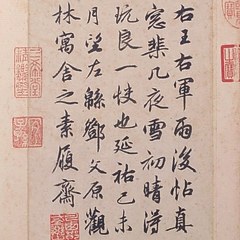 右王右軍雨後帖真
窓棐几夜雪初晴得
玩良一快也延祐己未
月望左緜鄧文原觀
林寓舍之素履齋